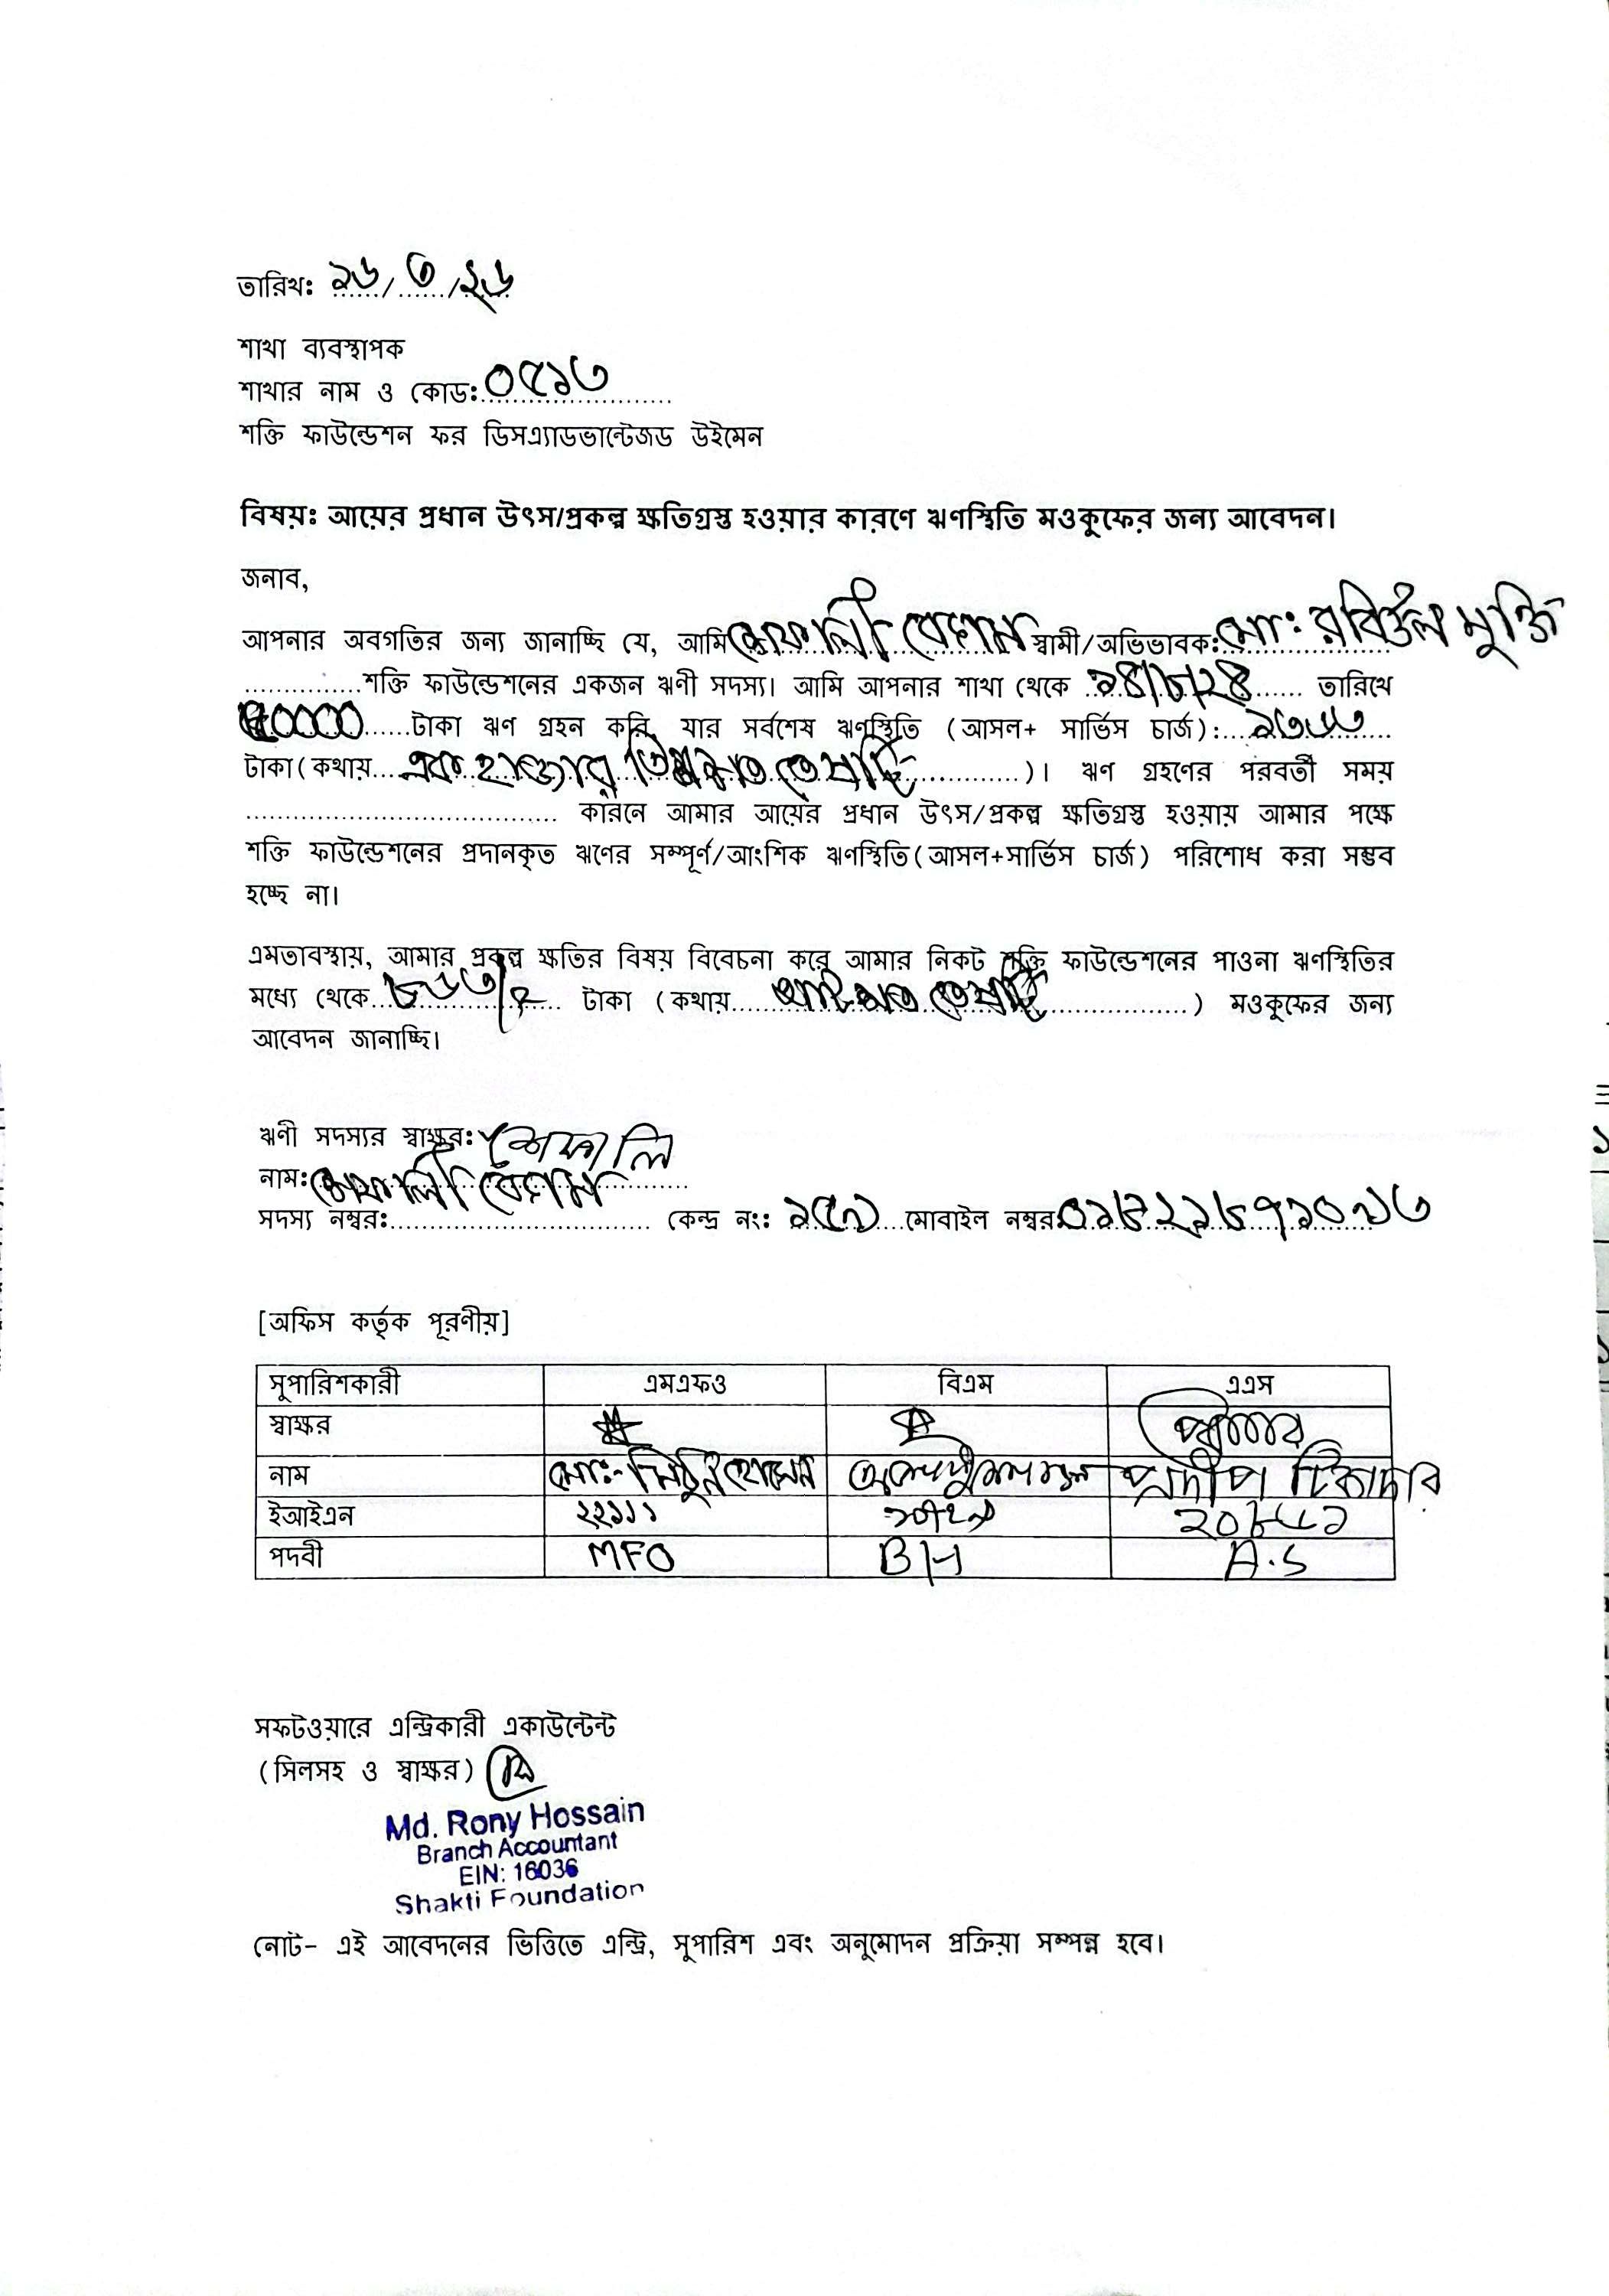 তারিখঃ ১৬/৩/২৬
শাখা ব্যবস্থাপক
শাখার নাম ও কোডঃ ০৫১৩
শক্তি ফাউন্ডেশন ফর ডিসএ্যাডভান্টেজড উইমেন
বিষয়ঃ আয়ের প্রধান উৎস/প্রকল্প ক্ষতিগ্রস্ত হওয়ার কারণে ঋণস্থিতি মওকুফের জন্য আবেদন।
জনাব,
আপনার অবগতির জন্য জানাচ্ছি যে, আমি শেফালী বেগম স্বামী/অভিভাবক: মোঃ রবিউল মুন্সি
শক্তি ফাউন্ডেশনের একজন ঋণী সদস্য। আমি আপনার শাখা থেকে ১৪/৮/২৪ তারিখে
৫০০০০ টাকা ঋণ গ্রহন করি যার সর্বশেষ ঋণস্থিতি (আসল+ সার্ভিস চার্জ): ১৩৬৩
টাকা(কথায় এক হাজার তিনশত তেষট্টি )। ঋণ গ্রহণের পরবর্তী সময়
কারনে আমার আয়ের প্রধান উৎস/প্রকল্প ক্ষতিগ্রস্ত হওয়ায় আমার পক্ষে
শক্তি ফাউন্ডেশনের প্রদানকৃত ঋণের সম্পূর্ণ/আংশিক ঋণস্থিতি(আসল+সার্ভিস চার্জ) পরিশোধ করা সম্ভব
হচ্ছে না।
এমতাবস্থায়, আমার প্রকল্প ক্ষতির বিষয় বিবেচনা করে আমার নিকট শক্তি ফাউন্ডেশনের পাওনা ঋণস্থিতির
মধ্যে থেকে ৮৬৩/= টাকা (কথায় আটশত তেষট্টি ) মওকুফের জন্য
আবেদন জানাচ্ছি।
ঋণী সদস্যর স্বাক্ষর: শেফালি
নাম: শেফালী বেগম
সদস্য নম্বর: কেন্দ্র নং: ১৫৯ মোবাইল নম্বর:
[অফিস কর্তৃক পূরণীয়]
সুপারিশকারী এমএফও বিএম এএস
স্বাক্ষর
নাম মোঃ- মিঠুন হোসেন প্রদীপ টিকাদার
ইআইএন ২২১১১
পদবী MFO BM A.S
সফটওয়ারে এন্ট্রিকারী একাউন্টেন্ট
(সিলসহ ও স্বাক্ষর)
Md. Rony Hossain
Branch Accountant
EIN: 16036
Shakti Foundation
নোট- এই আবেদনের ভিত্তিতে এন্ট্রি, সুপারিশ এবং অনুমোদন প্রক্রিয়া সম্পন্ন হবে।